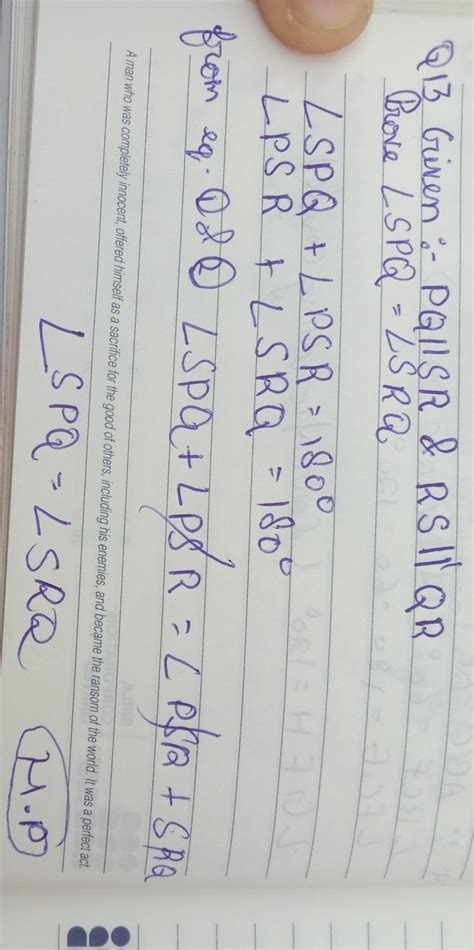 Q13 Given :- PQ||SR & RS||QR
Prove ∠SPQ = ∠SRQ
∠SPQ + ∠PSR = 180°
∠PSR + ∠SRQ = 180°
from eq. ① & ② ∠SPQ + ∠PSR = ∠PSR + SRQ
A man who was completely innocent, offered himself as a sacrifice for the good of others, including his enemies, and became the ransom of the world. It was a perfect act.
∠SPQ = ∠SRQ H.P